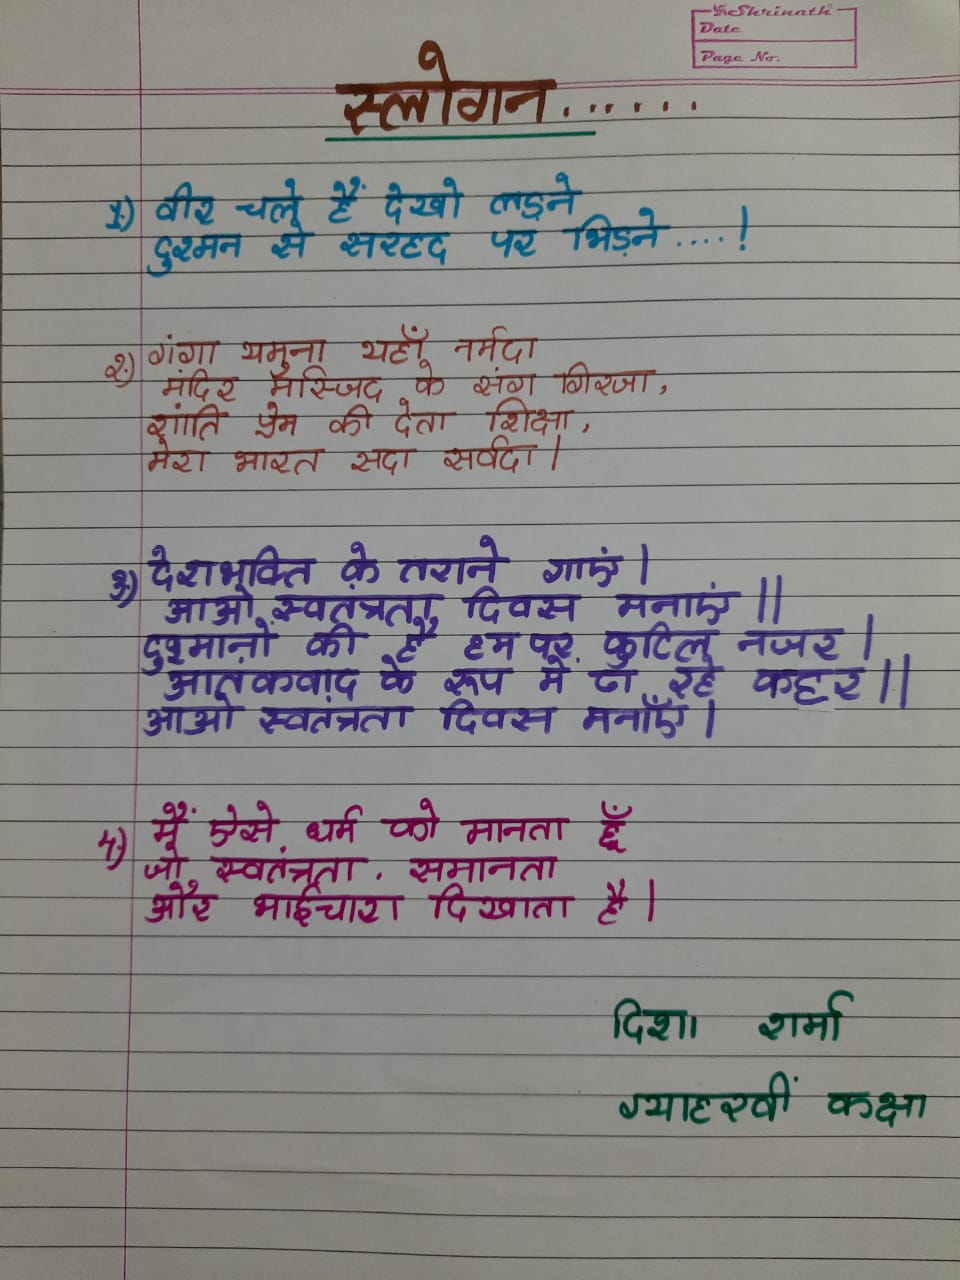 Shrinath
Date
Page No.
स्लोगन......
१.) वीर चले हैं देखो लड़ने
दुश्मन से सरहद पर भिड़ने....!
२.) गंगा यमुना यहाँ नर्मदा
मंदिर मस्जिद के संग गिरजा,
शांति प्रेम की देता शिक्षा,
मेरा भारत सदा सर्वदा।
३.) देशभक्ति के तराने गाएं।
आओ स्वतंत्रता दिवस मनाएं॥
दुश्मानों की है हम पर कुटिल नजर।
आतंकवाद के रूप में ढा रहे कहर॥
आओ स्वतंत्रता दिवस मनाएँ।
४.) मैं ऐसे धर्म को मानता हूँ
जो स्वतंत्रता, समानता
और भाईचारा दिखाता है।
दिशा शर्मा
ग्याहरवीं कक्षा